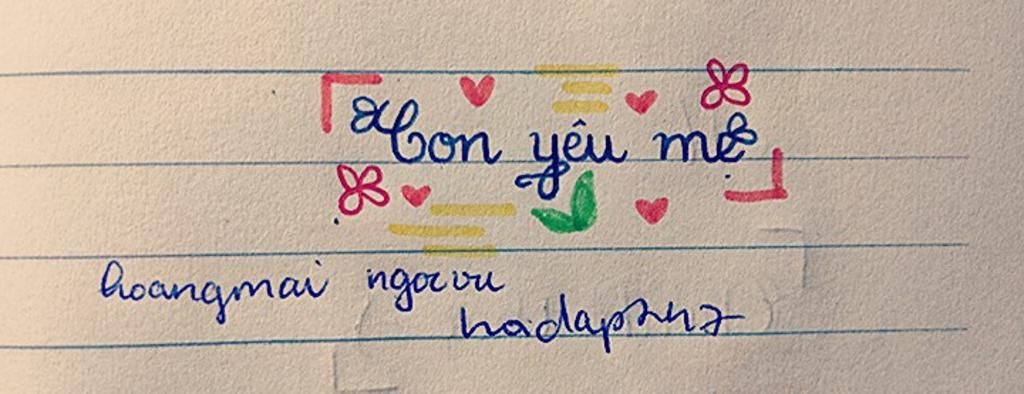 Con yêu mẹ
hoangmai ngocvu